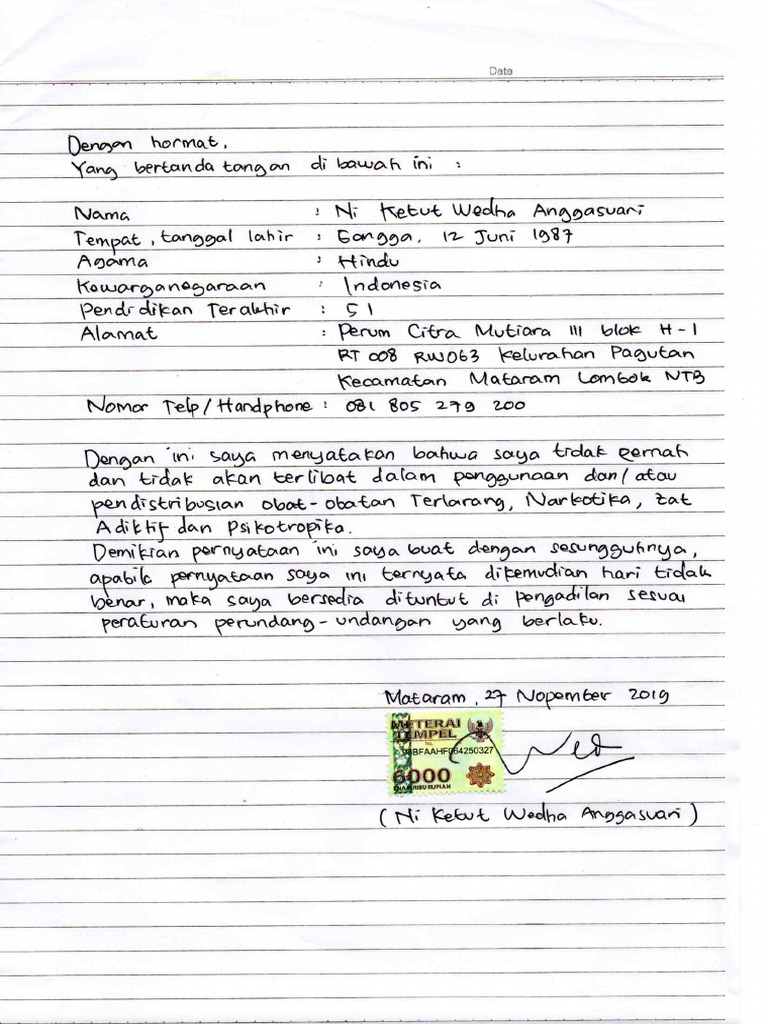 Date
Dengan hormat,
Yang bertanda tangan di bawah ini :
Nama : Ni Ketut Wedha Anggasuari
Tempat, tanggal lahir : Gangga, 12 Juni 1987
Agama : Hindu
Kewarganegaraan : Indonesia
Pendidikan Terakhir : S1
Alamat : Perum Citra Mutiara III blok H-1
RT 008 RW063 Kelurahan Pagutan
Kecamatan Mataram Lombok NTB
Nomor Telp/Handphone : 081 805 279 200
Dengan ini saya menyatakan bahwa saya tidak pernah
dan tidak akan terlibat dalam penggunaan dan/atau
pendistribusian obat-obatan Terlarang, Narkotika, zat
Adiktif dan Psikotropika.
Demikian pernyataan ini saya buat dengan sesungguhnya,
apabila pernyataan saya ini ternyata dikemudian hari tidak
benar, maka saya bersedia dituntut di pengadilan sesuai
peraturan perundang-undangan yang berlaku.
Mataram, 27 Nopember 2019
METERAI
TEMPEL
TGL
98BFAAHF064250327
6000
ENAM RIBU RUPIAH
(Ni Ketut Wedha Anggasuari)